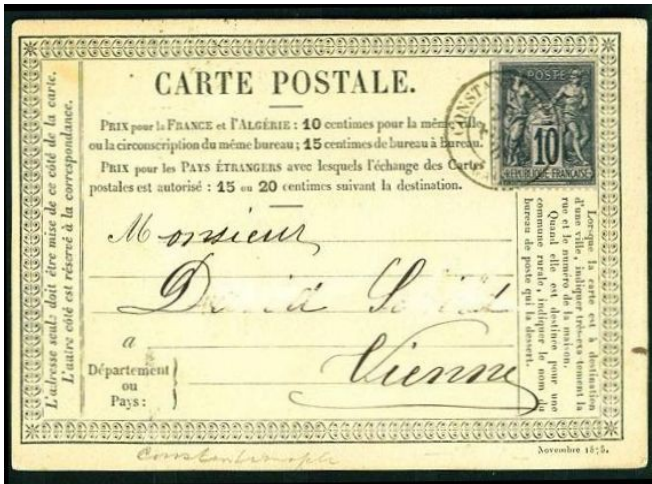 CARTE POSTALE.
PRIX pour la FRANCE et l'ALGÉRIE : 10 centimes pour la même ville
ou la circonscription du même bureau ; 15 centimes de bureau à bureau.
PRIX pour les PAYS ÉTRANGERS avec lesquels l'échange des Cartes
postales est autorisé : 15 ou 20 centimes suivant la destination.
POSTE
10
RÉPUBLIQUE FRANÇAISE
CONSTA
L'adresse seule doit être mise de ce côté de la carte.
L'autre côté est réservé à la correspondance.
Monsieur
à
Vienne
Département
ou
Pays :
Lorsque la carte est à destination
d'une ville, indiquer très-exactement la
rue et le numéro de la maison.
Quand elle est destinée pour une
commune rurale, indiquer le nom du
bureau de poste qui la dessert.
Novembre 1875.
Constantinople